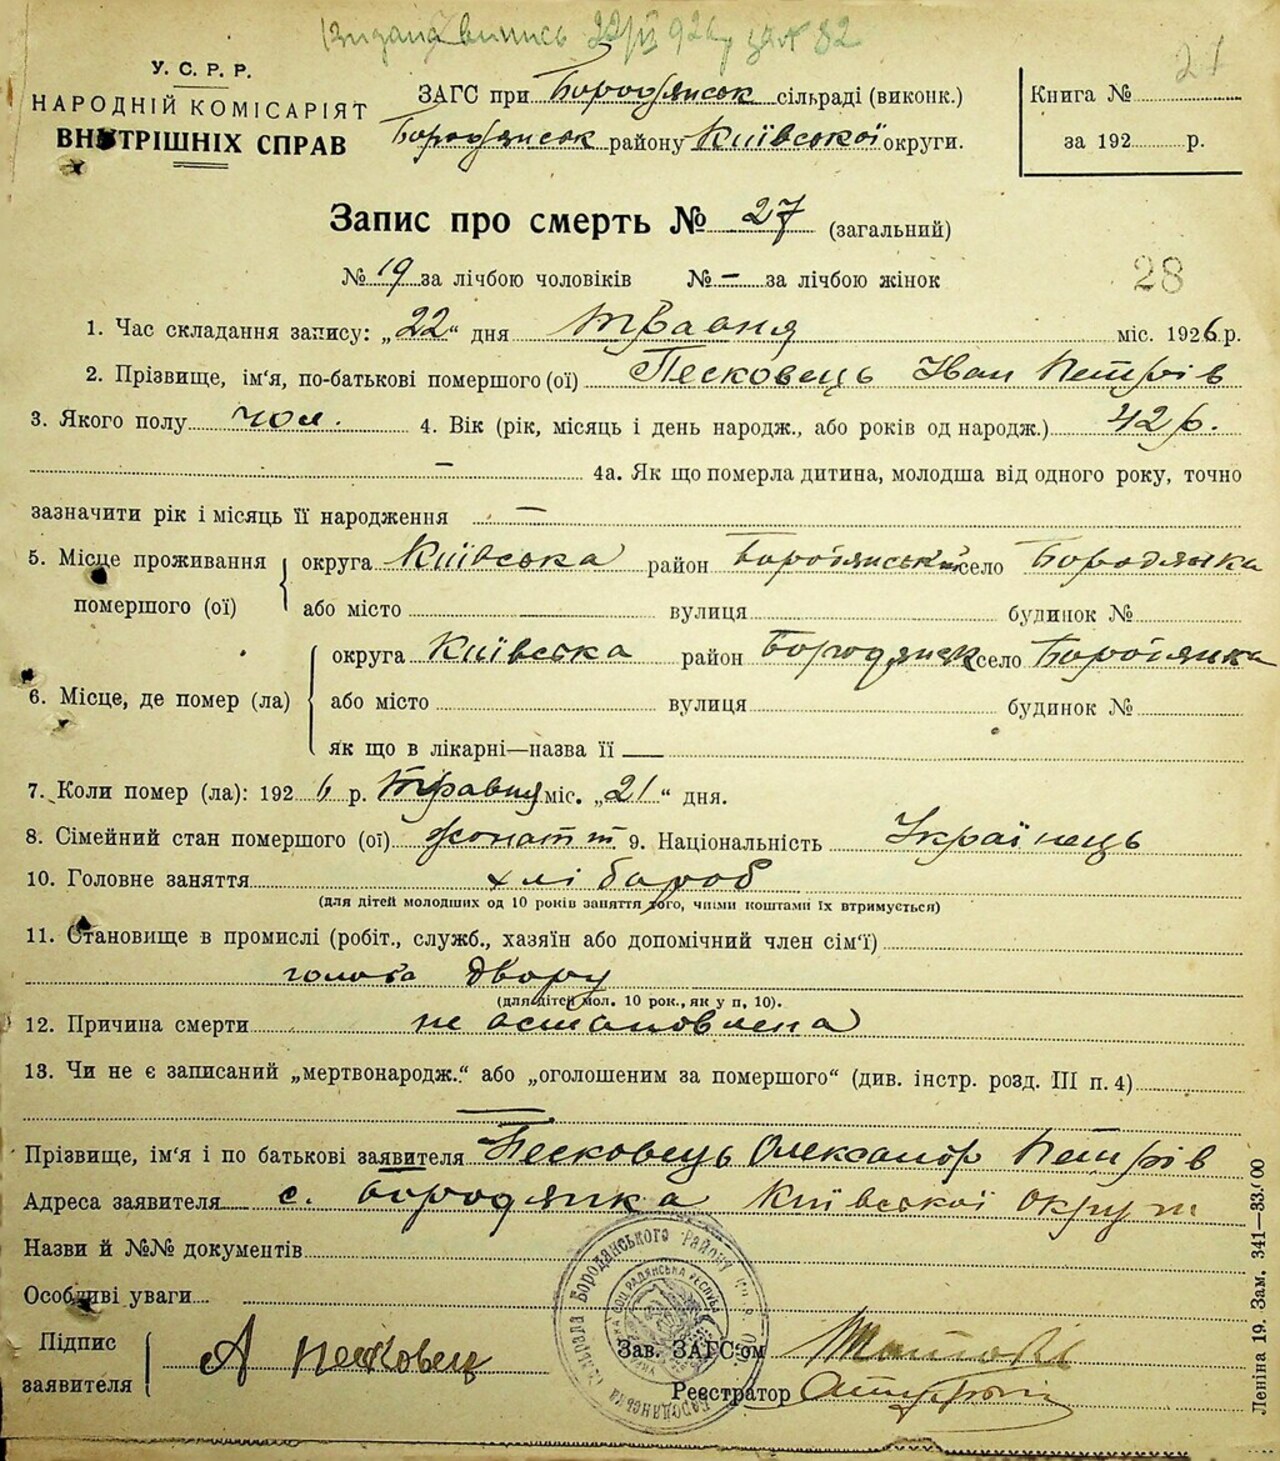 Видана випись 22/VI 926 р за № 82
21
У. С. Р. Р.
НАРОДНІЙ КОМІСАРІЯТ
ВНУТРІШНІХ СПРАВ
ЗАГС при Бородянськ сільраді (виконк.)
Бородянськ району Київської округи.
Книга №
за 192 р.
Запис про смерть № 27 (загальний)
№ 19 за лічбою чоловіків № – за лічбою жінок
28
1. Час складання запису: „22“ дня травня міс. 1926 р.
2. Прізвище, ім'я, по-батькові помершого (ої) Песковець Іван Петрів
3. Якого полу чол. 4. Вік (рік, місяць і день народж., або років од народж.) 42 р.
– 4а. Як що померла дитина, молодша від одного року, точно
зазначити рік і місяць її народження –
5. Місце проживання помершого (ої) округа Київська район Бородянський село Бородянка
або місто вулиця будинок №
6. Місце, де помер (ла) округа Київська район Бородянськ село Бородянка
або місто вулиця будинок №
як що в лікарні—назва її —
7. Коли помер (ла): 1926 р. Травня міс. „21“ дня.
8. Сімейний стан помершого (ої) жонатт 9. Національність Українець
10. Головне заняття хлібороб
(для дітей молодших од 10 років заняття того, чиїми коштами їх втримується)
11. Становище в промислі (робіт., служб., хазяїн або допомічний член сім'ї)
голова двору
(для дітей мол. 10 рок., як у п, 10).
12. Причина смерти не астановлена
13. Чи не є записаний „мертвонародж.“ або „оголошеним за помершого“ (див. інстр. розд. III п. 4)
—
Прізвище, ім'я і по батькові заявителя Песковець Олександр Петрів
Адреса заявителя с. Бородянка Київської Округи
Назви й №№ документів
Особливі уваги
Підпис заявителя А Песковец
Зав. ЗАГС'ом
Реєстратор
Бородянського Району
Леніна 19. Зам. 341—33.000